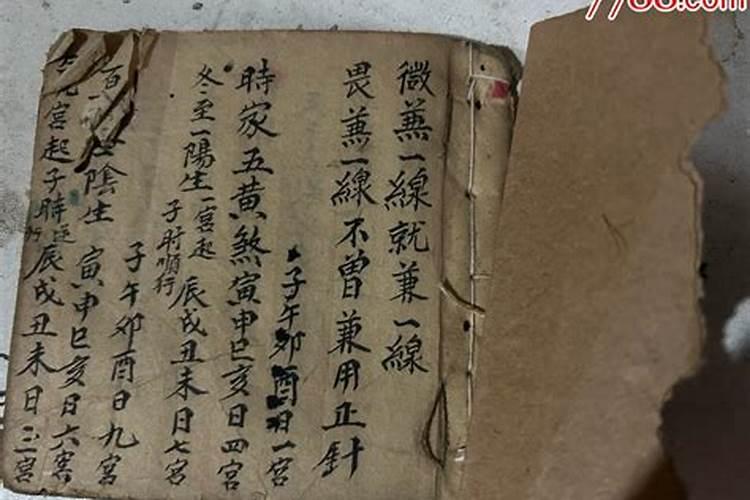 7788.com
微蕪一線就兼一線
畏蕪一線不曾兼用正針
子午卯酉日一宮
時家五黄煞寅申巳亥日四宮
冬至一陽生一宮起
子时順行
辰戌丑未日七宮
子午卯酉日九宮
陰生
寅申巳亥日六宮
宮起子時逆行
辰戌丑未日三宮